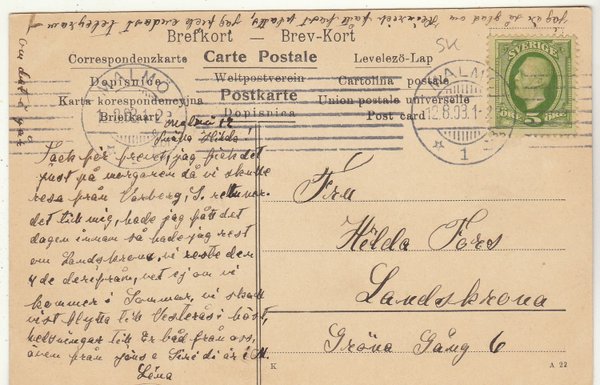 Jag är så glad om Heinrich
jag fick endast telegram
Brefkort — Brev-Kort
Correspondenzkarte Carte Postale Levelezö-Lap
Dopisnice Weltpostverein Cartolina postale
Karta korespondencyjna Postkarte Union postale universelle
Briefkaart Dopisnica Post card
SVERIGE
5 ÖRE 5
MALMÖ
12.8.03.1-2
1
Malmö 12
Snälla Hilda!
Tack för brevet, jag fick det
just på morgonen då vi skulle
resa från Varberg, S.
det till mig, hade jag fått det
dagen innan så hade jag rest
om Landskrona, vi reste den
4 de derifrån, vet ej om vi
kommer i Sommar, vi skall
vist flytta till Vesterås i höst,
helsningar till Er båd från oss,
även från Siri di är i M.
Lena
Fru
Hilda Fors
Landskrona
Gröna Gång 6
K
A 22